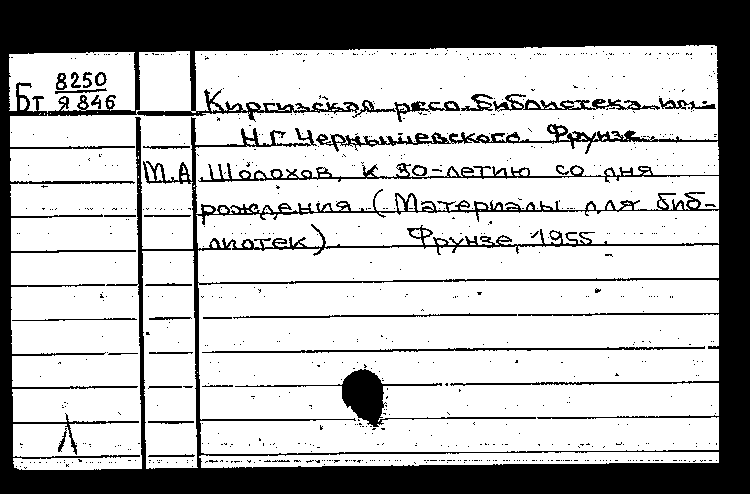 Бт 8250
Я 846
Киргизская респ. библиотека им.
Н.Г. Чернышевского. Фрунзе.
М.А. Шолохов. К 50-летию со дня
рождения. (Материалы для биб-
лиотек). Фрунзе, 1955.
Л